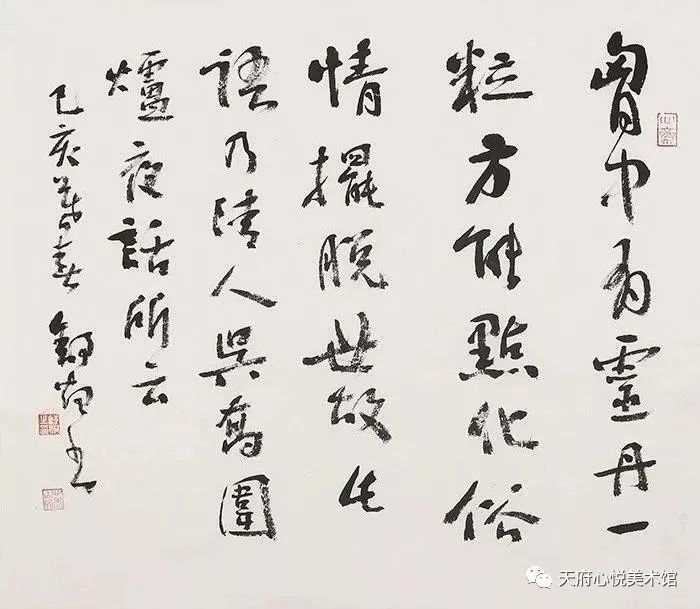 胷中有靈丹一
粒方能點化俗
情擺脫世故此
語乃清人吳喬圍
爐夜話所云
己亥書
天府心悦美术馆